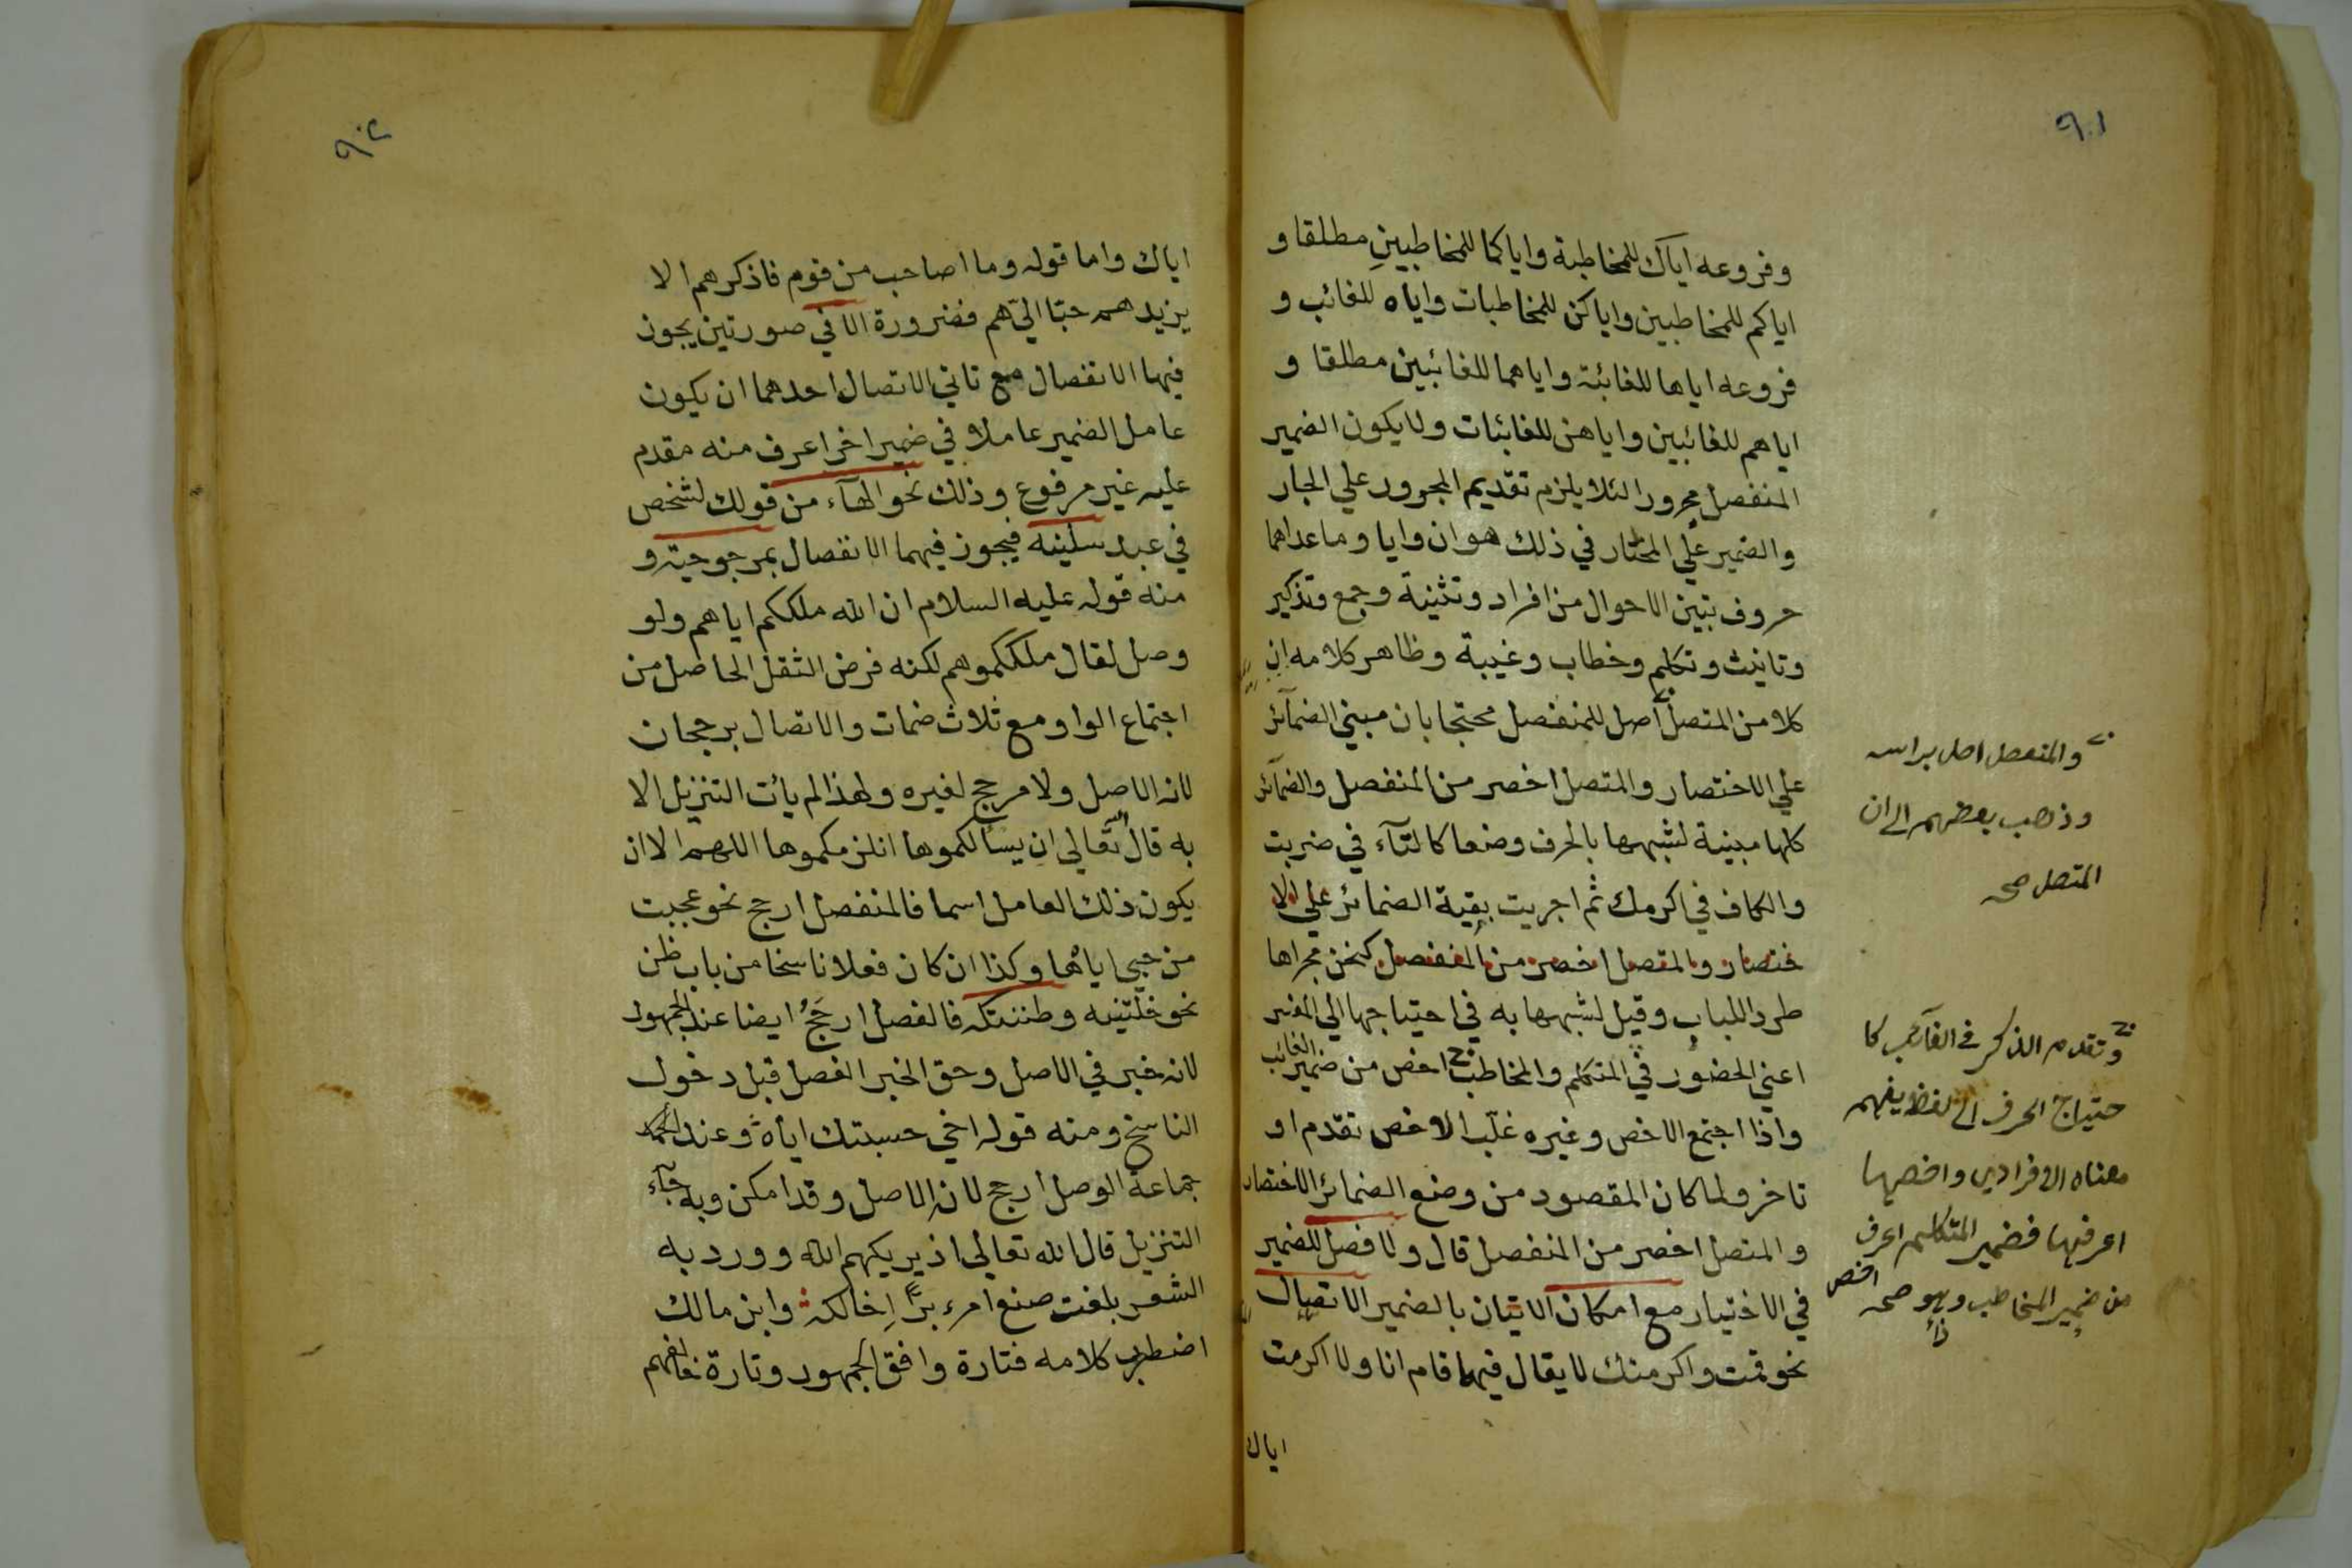 ٩٠١
وفروعه اياك للمخاطبة واياكما للمخاطبين مطلقا و
اياكم للمخاطبين واياكن للمخاطبات واياه للغائب و
فروعه اياها للغائبة واياهما للغائبين مطلقا و
اياهم للغائبين واياهن للغائبات ولا يكون الضمير
المنفصل مجرورا لئلا يلزم تقديم المجرور علي الجار
والضمير علي المختار في ذلك هو ان وايا وما عداهما
حروف تبين الاحوال من افراد وتثنية وجمع وتذكير
وتانيث وتكلم وخطاب وغيبة وظاهر كلامه ان
كلا من المتصل اصل للمنفصل محتجا بان مبني الضمآئر
علي الاختصار والمتصل اخصر من المنفصل والضمآئر
كلها مبنية لشبهها بالحرف وضعا كالتآء في ضربت
والكاف في اكرمك ثم اجريت بقية الضمائر علي الا
ختصار والمتصل اخصر من المنفصل كنحن مجراها
طردا للباب وقيل لشبهها به في احتياجها الي المفسر
اعني الحضور في المتكلم والمخاطب اخص من ضمير الغائب
واذا اجتمع الاخص وغيره غلب الاخص تقدم او
تاخر ولما كان المقصود من وضع الضمائر الاختصار
والمتصل اخصر من المنفصل قال ولا فصل للضمير
في الاختيار مع امكان الاتيان بالضمير الاتصال
نحو قمت واكرمتك لا يقال فيهما قام انا ولا اكرمت
اياك
والمنفصل اصل براسه
وذهب بعضهم الى ان
المتصل صح
وتقدم الذكر في الغآئب كا
حتياج الحرف الى لفظ يفهم
معناه الافرادي واخصها
اعرفها فضمير المتكلم اعرف
من ضمير المخاطب وهو صح اخص
٩٠٢
اياك واما قوله وما اصاحب من قوم فاذكرهم الا
يزيدهم حبّا اليّ هم فضرورة الا في صورتين يجوز
فيها الانفصال مع تاتي الاتصال احدهما ان يكون
عامل الضمير عاملا في ضمير اخر اعرف منه مقدم
عليه غير مرفوع وذلك نحو الهآء من قولك لشخص
في عبد سلنيه فيجوز فيهما الانفصال بمرجوحية و
منه قوله عليه السلام ان الله ملككم اياهم ولو
وصل لقال ملككموهم لكنه فرض الثقل الحاصل من
اجتماع الواو مع ثلاث ضمات والاتصال برجحان
لانه الاصل ولا مرجح لغيره ولهذا لم يأت التنزيل الا
به قال الله تعالي ان يسألكموها انلزمكموها اللهم الا ان
يكون ذلك العامل اسما فالمنفصل ارجح نحو عجبت
من حبي اياها وكذا ان كان فعلا ناسخا من باب ظن
نحو خلتنيه وظننتكه فالفصل ارجح ايضا عند الجمهور
لانه خبر في الاصل وحق الخبر الفصل قبل دخول
الناسخ ومنه قوله اخي حسبتك اياه وعند
جماعة الوصل ارجح لانه الاصل وقد امكن وبه جآء
التنزيل قال الله تعالي اذ يريكهم الله وورد به
الشعر بلغت صنع امرء برّا اِخالكه وابن مالك
اضطرب كلامه فتارة وافق الجمهور وتارة خالفهم